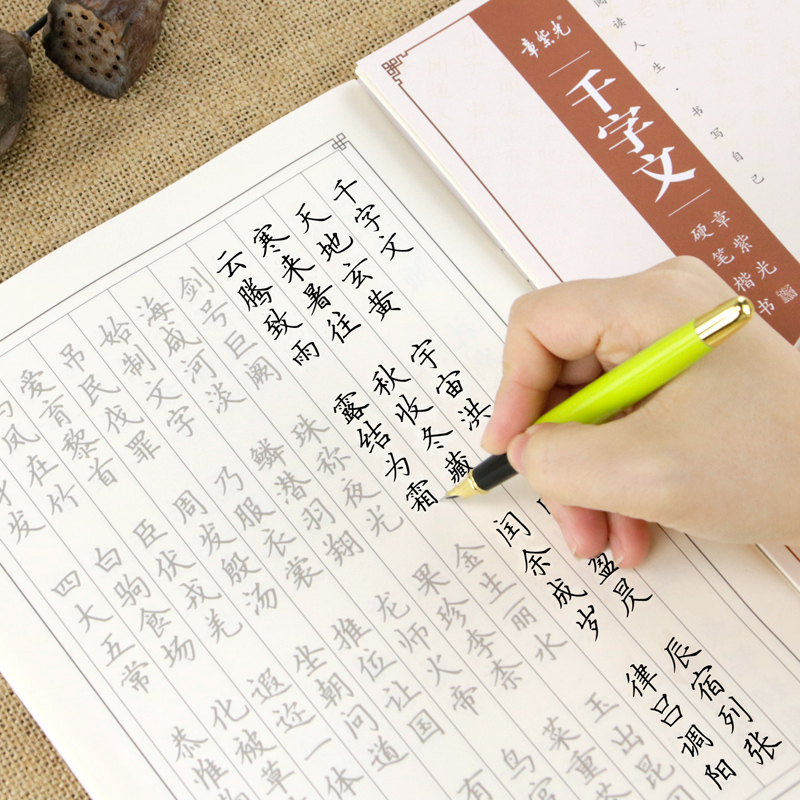 阅读人生·书写自己
章紫光®
千字文
章紫光
硬笔楷书
千字文
天地玄黄 宇宙洪 盈昃 辰宿列张
寒来暑往 秋收冬藏 闰余成岁 律吕调阳
云腾致雨 露结为霜 金生丽水 玉出昆
剑号巨阙 珠称夜光 果珍李柰 菜重
海咸河淡 鳞潜羽翔 龙师火帝 鸟官
始制文字 乃服衣裳 推位让国 有
吊民伐罪 周发殷汤 坐朝问道
爱育黎首 臣伏戎羌 遐迩一体
鸣凤在竹 白驹食场 化被草
发 四大五常 恭惟